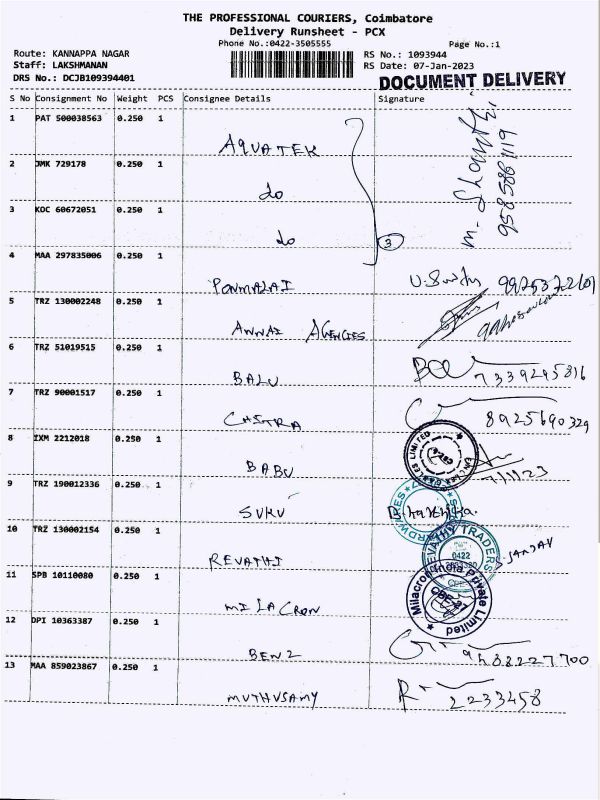 THE PROFESSIONAL COURIERS, Coimbatore
Delivery Runsheet - PCX
Phone No.:0422-3505555 Page No.:1
Route: KANNAPPA NAGAR RS No.: 1093944
Staff: LAKSHMANAN RS Date: 07-Jan-2023
DRS No.: DCJB109394401 DOCUMENT DELIVERY
S No Consignment No Weight PCS Consignee Details Signature
1 PAT 500038563 0.250 1 AQUATEK
2 JMK 729178 0.250 1 do
3 KOC 60672051 0.250 1 do 3
4 MAA 297835006 0.250 1 PONMALAI
5 TRZ 130002248 0.250 1 ANNAI AGENCIES
6 TRZ 51019515 0.250 1 BALU 7339295816
7 TRZ 90001517 0.250 1 CHITRA 8925690329
8 IXM 2212018 0.250 1 BABU 7/1/23
9 TRZ 190012336 0.250 1 SUKU
10 TRZ 130002154 0.250 1 REVATHI TRADERS 0422
11 SPB 10110080 0.250 1 MILACRON Milacron India Private Limited CBE
12 DPI 10363387 0.250 1 BENZ 9488227700
13 MAA 859023867 0.250 1 MUTHUSAMY 2233458